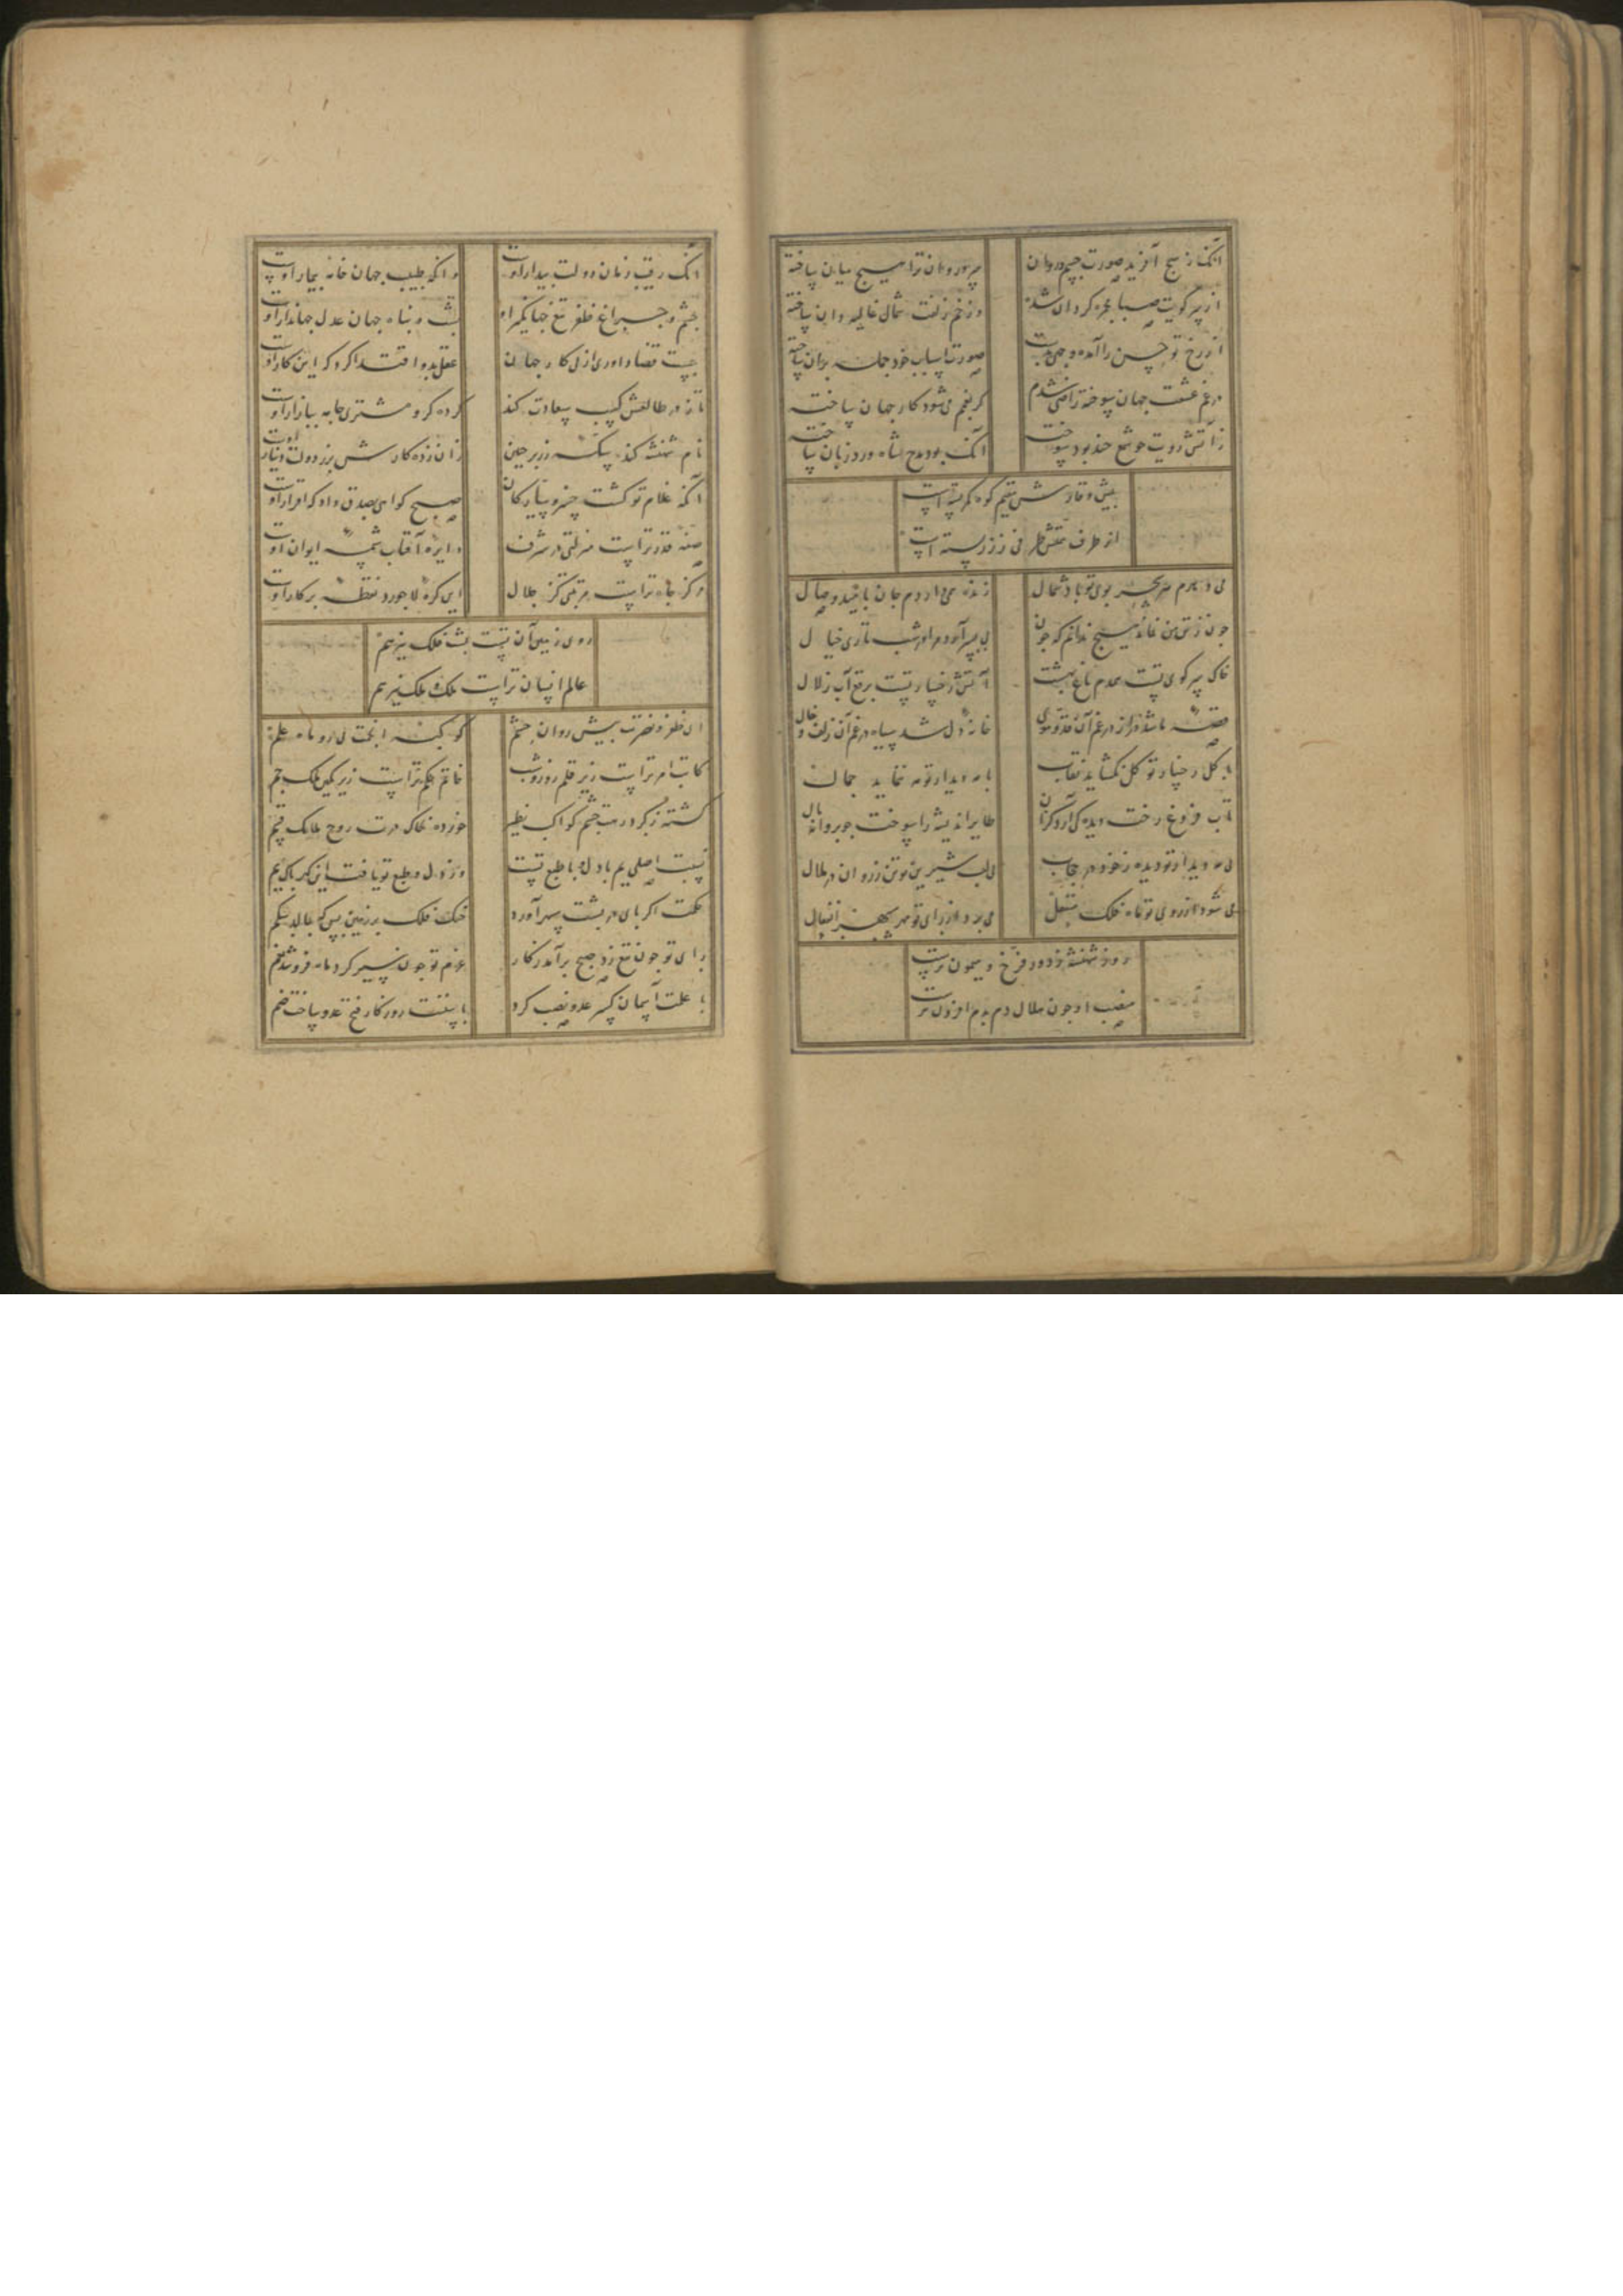 آنک ز هیچ آفرید صورت جسم و روان
سرو روان ترا هیچ میان ساخته
از سر کویت صبا مجمره کردان شده
وز خم زلفت شمال غالیه دان ساخته
از رخ تو حسن را آمده وجهی بدست
صورت اسباب خود جمله بدان ساخته
در غم عشقت جهان سوخته راضی شدم
کر بغم می شود کار جهان ساخته
زآتش رویت چو شمع خند بود سوخت
آنک بود مدح شاه ورد زبان ساخته
پیش وقارش مقیم کوه کمر بسته است
از طرف طرفی ز زر بسته است
می دهدم هر سحر بوی تو باد شمال
زنده می دارد دم جان بامید وصال
چون ز تن من نماند هیچ ندانم که چون
بی بسر آورد مرا در شب تاری خیال
خاک سر کوی تست همدم باغ بهشت
آتش رخسار تست برقع آب زلال
قصه ما شد دراز در غم آن قد و موی
خانه دل شد سیاه در غم آن زلف و خال
با کل رخسار تو کل نکشاید نقاب
با مه دیدار تو مه ننماید جمال
تاب فروغ رخت دیده کی آرد کزان
طایر اندیشه را سوخت چو پروانه بال
بی مه دیدار تو دیده ز خود در حجاب
بی لب شیرین تو تن ز روان در ملال
می شود از روی تو ماه فلک منفعل
می برد از رای تو مهر سپهر انفعال
روز شهنشه ز دور فرخ و میمون ترست
منصب او چون هلال دم بدم افزون ترست
آنک رقیب زمان دولت بیدار اوست
وانکه طبیب جهان خانه بیمار اوست
چشم و چراغ ظفر تیغ جهانکیر او
پشت و پناه جهان عدل جهاندار اوست
چیست قضا داوری از پی کار جهان
عقل بدو اقتدا کرد که این کار اوست
تا نظر طالعش کسب سعادت کند
کرده کرو مشتری جامه ببازار اوست
نام شهنشه کند سکه ز بر جبین
زان زده کارش بزر دولت دینار اوست
آنکه غلام تو کشت خسرو سیارکان
صبح کواهی بصدق داد که اقرار اوست
صفه قدر تراست منزلتی در شرف
دایره آفتاب شمسه ایوان اوست
مرکز جاه تراست مرتبتی کز جلال
این کره لاجورد نقطه پرکار اوست
روی زمین آن تست پشت فلک نیز هم
عالم انسان تراست ملک ملک نیز هم
ای ظفر و نصرتت پیش روان حشم
کوکبه انجمت پی رو ماه علم
کاتب امر تراست زیر قلم روز و شب
خاتم حکم تراست زیر نکین ملک جم
کشته ز کرد رهت چشم کواکب بظیر
خورده بخاک درت روح ملایک قسم
نسبت اصلی یم با دل و با طبع تست
وز دل و طبع تو یافت این کهر پاک یم
حکمت اکر پای در پشت سپهر آورد
خنک فلک بر زمین پس که بمالد شکم
رای تو چون تیغ زد صبح برآمد ز کار
عزم تو چون سیر کرد ماه فروشد بغم
با علمت آسمان کسر عدو نصب کرد
با سپهت روزکار فتح عدو ساخت ضم